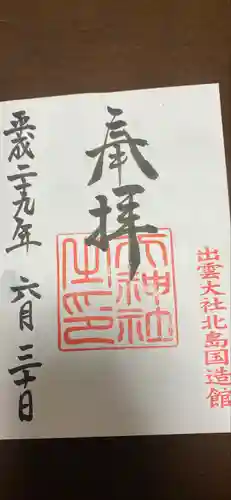 出雲大社北島国造館
奉拝
天神社之印
平成二十九年 六月 三十日